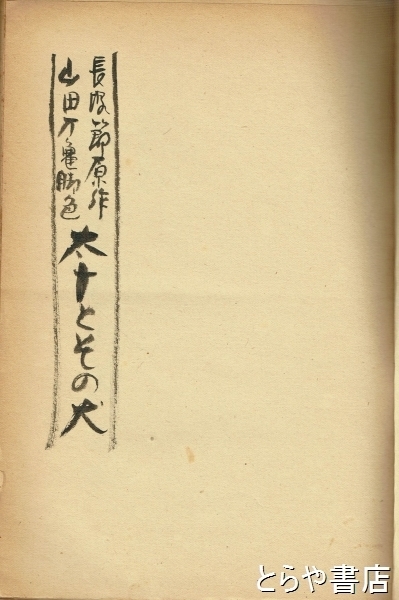 長塚節原作
山田才亀脚色
太十とその犬
とらや書店